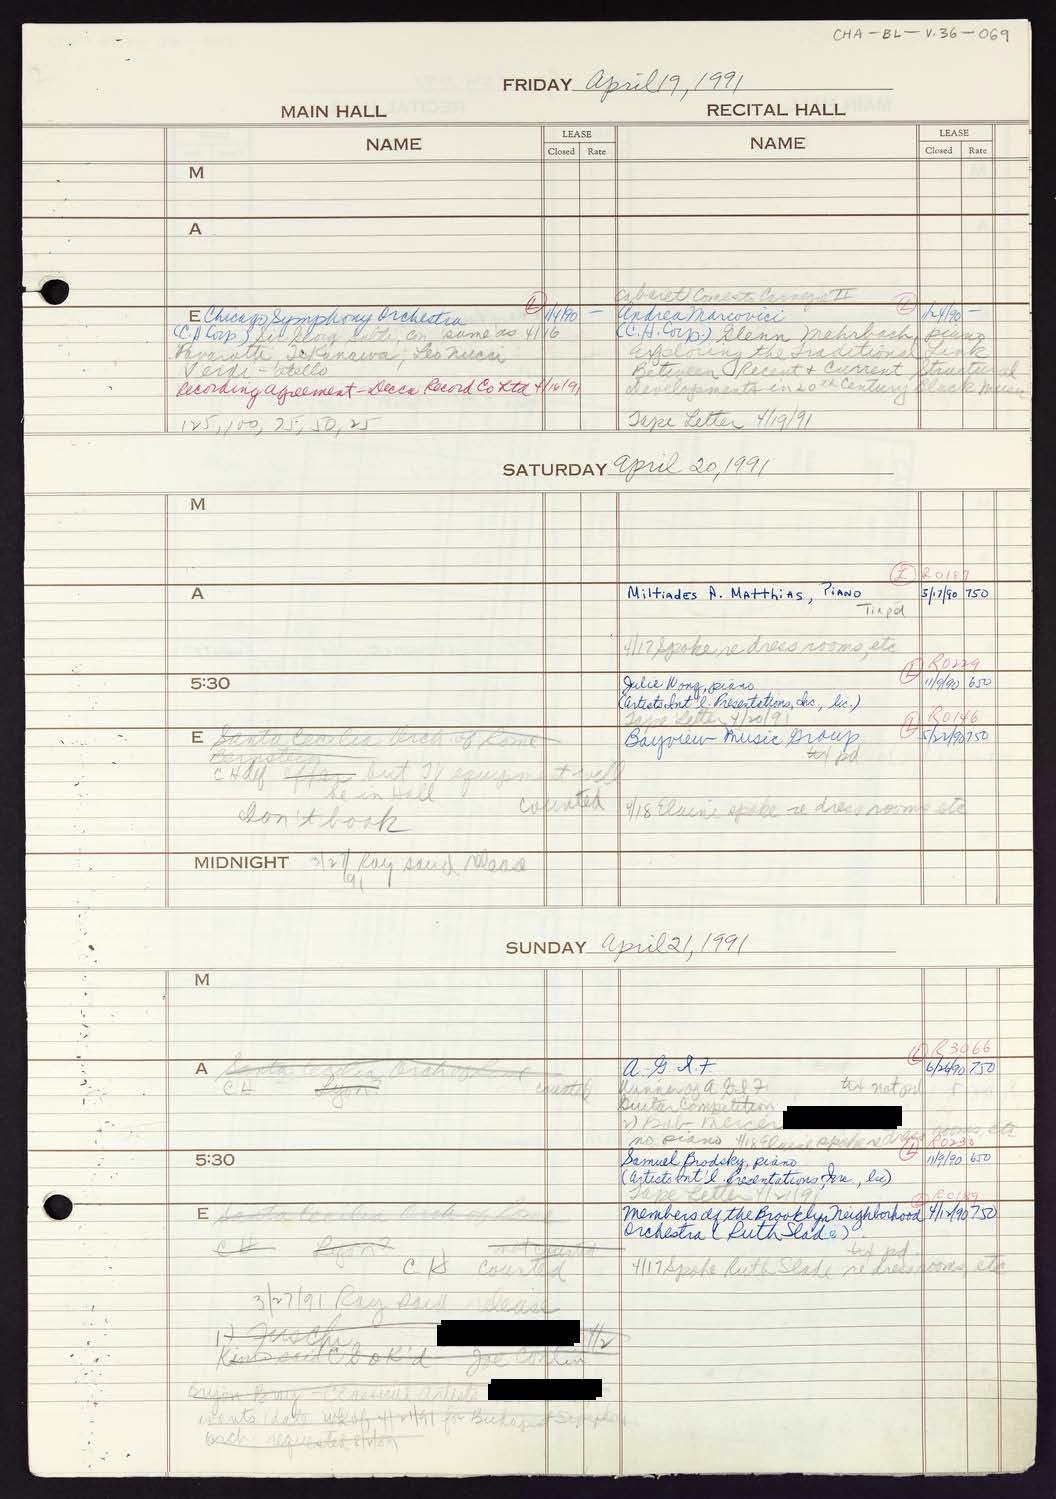 CHA-BL-V.36-069
FRIDAY April 19, 1991
MAIN HALL
RECITAL HALL
NAME
LEASE
Closed Rate
NAME
LEASE
Closed Rate
M
A
E Chicago Symphony Orchestra L 1/4/90 –
(C.H. Corp.) Sir Georg Solti, con same as 4/16
Pavarotti, Te Kanawa, Leo Nucci
Verdi - Otello
Recording Agreement - Decca Record Co Ltd 4/16/91
125, 100, 75, 50, 25
Cabaret Comes to Carnegie II
Andrea Marcovicci L 1/24/90 –
(C.H. Corp.) Glenn Mehrbach, piano
Exploring the Traditional Link
Between Recent & Current Structural
developments in 20th Century Black Music
Tape Letter 4/19/91
SATURDAY April 20, 1991
M
A
L R0187
Miltiades A. Matthias, Piano 5/17/90 750
4/17 Spoke re dress rooms, etc
5:30
L R0229
Julie Wong, piano 11/9/90 650
(Artists Int'l. Presentations, Inc., lic.)
Tape Letter 4/20/91
E Santa Cecilia Orch of Rome
Bernstein
but TV equipment will
be in Hall
counted
Don't book
L R0146
Bayview Music Group 5/22/90 750
txt pd
4/18 Elaine spoke re dress rooms etc
MIDNIGHT 3/27/91 Ray said release
SUNDAY April 21, 1991
M
A Santa Cecilia Orch of Rome
CH Lyon? counted
L R3066
A.G.I.F 6/26/90 750
Winner of A.G.I.F. txt not pd
Guitar Competition
no piano 4/18 Elaine spoke re dress rooms, etc
5:30
L
Samuel Brodsky, piano 11/9/90 650
(Artists Int'l. Presentations, Inc., lic)
Tape Letter 4/21/91
E Santa Cecilia Orch of Rome
CH Lyon? not counted
CH counted
3/27/91 Ray said release
L R0189
Members of the Brooklyn Neighborhood 4/12/90 750
Orchestra (Ruth Slade)
txt pd.
4/17 Spoke Ruth Slade re dress rooms, etc
4/2
ok'd Joe Conlin
wants date 4/21/91 for Budapest Symphony